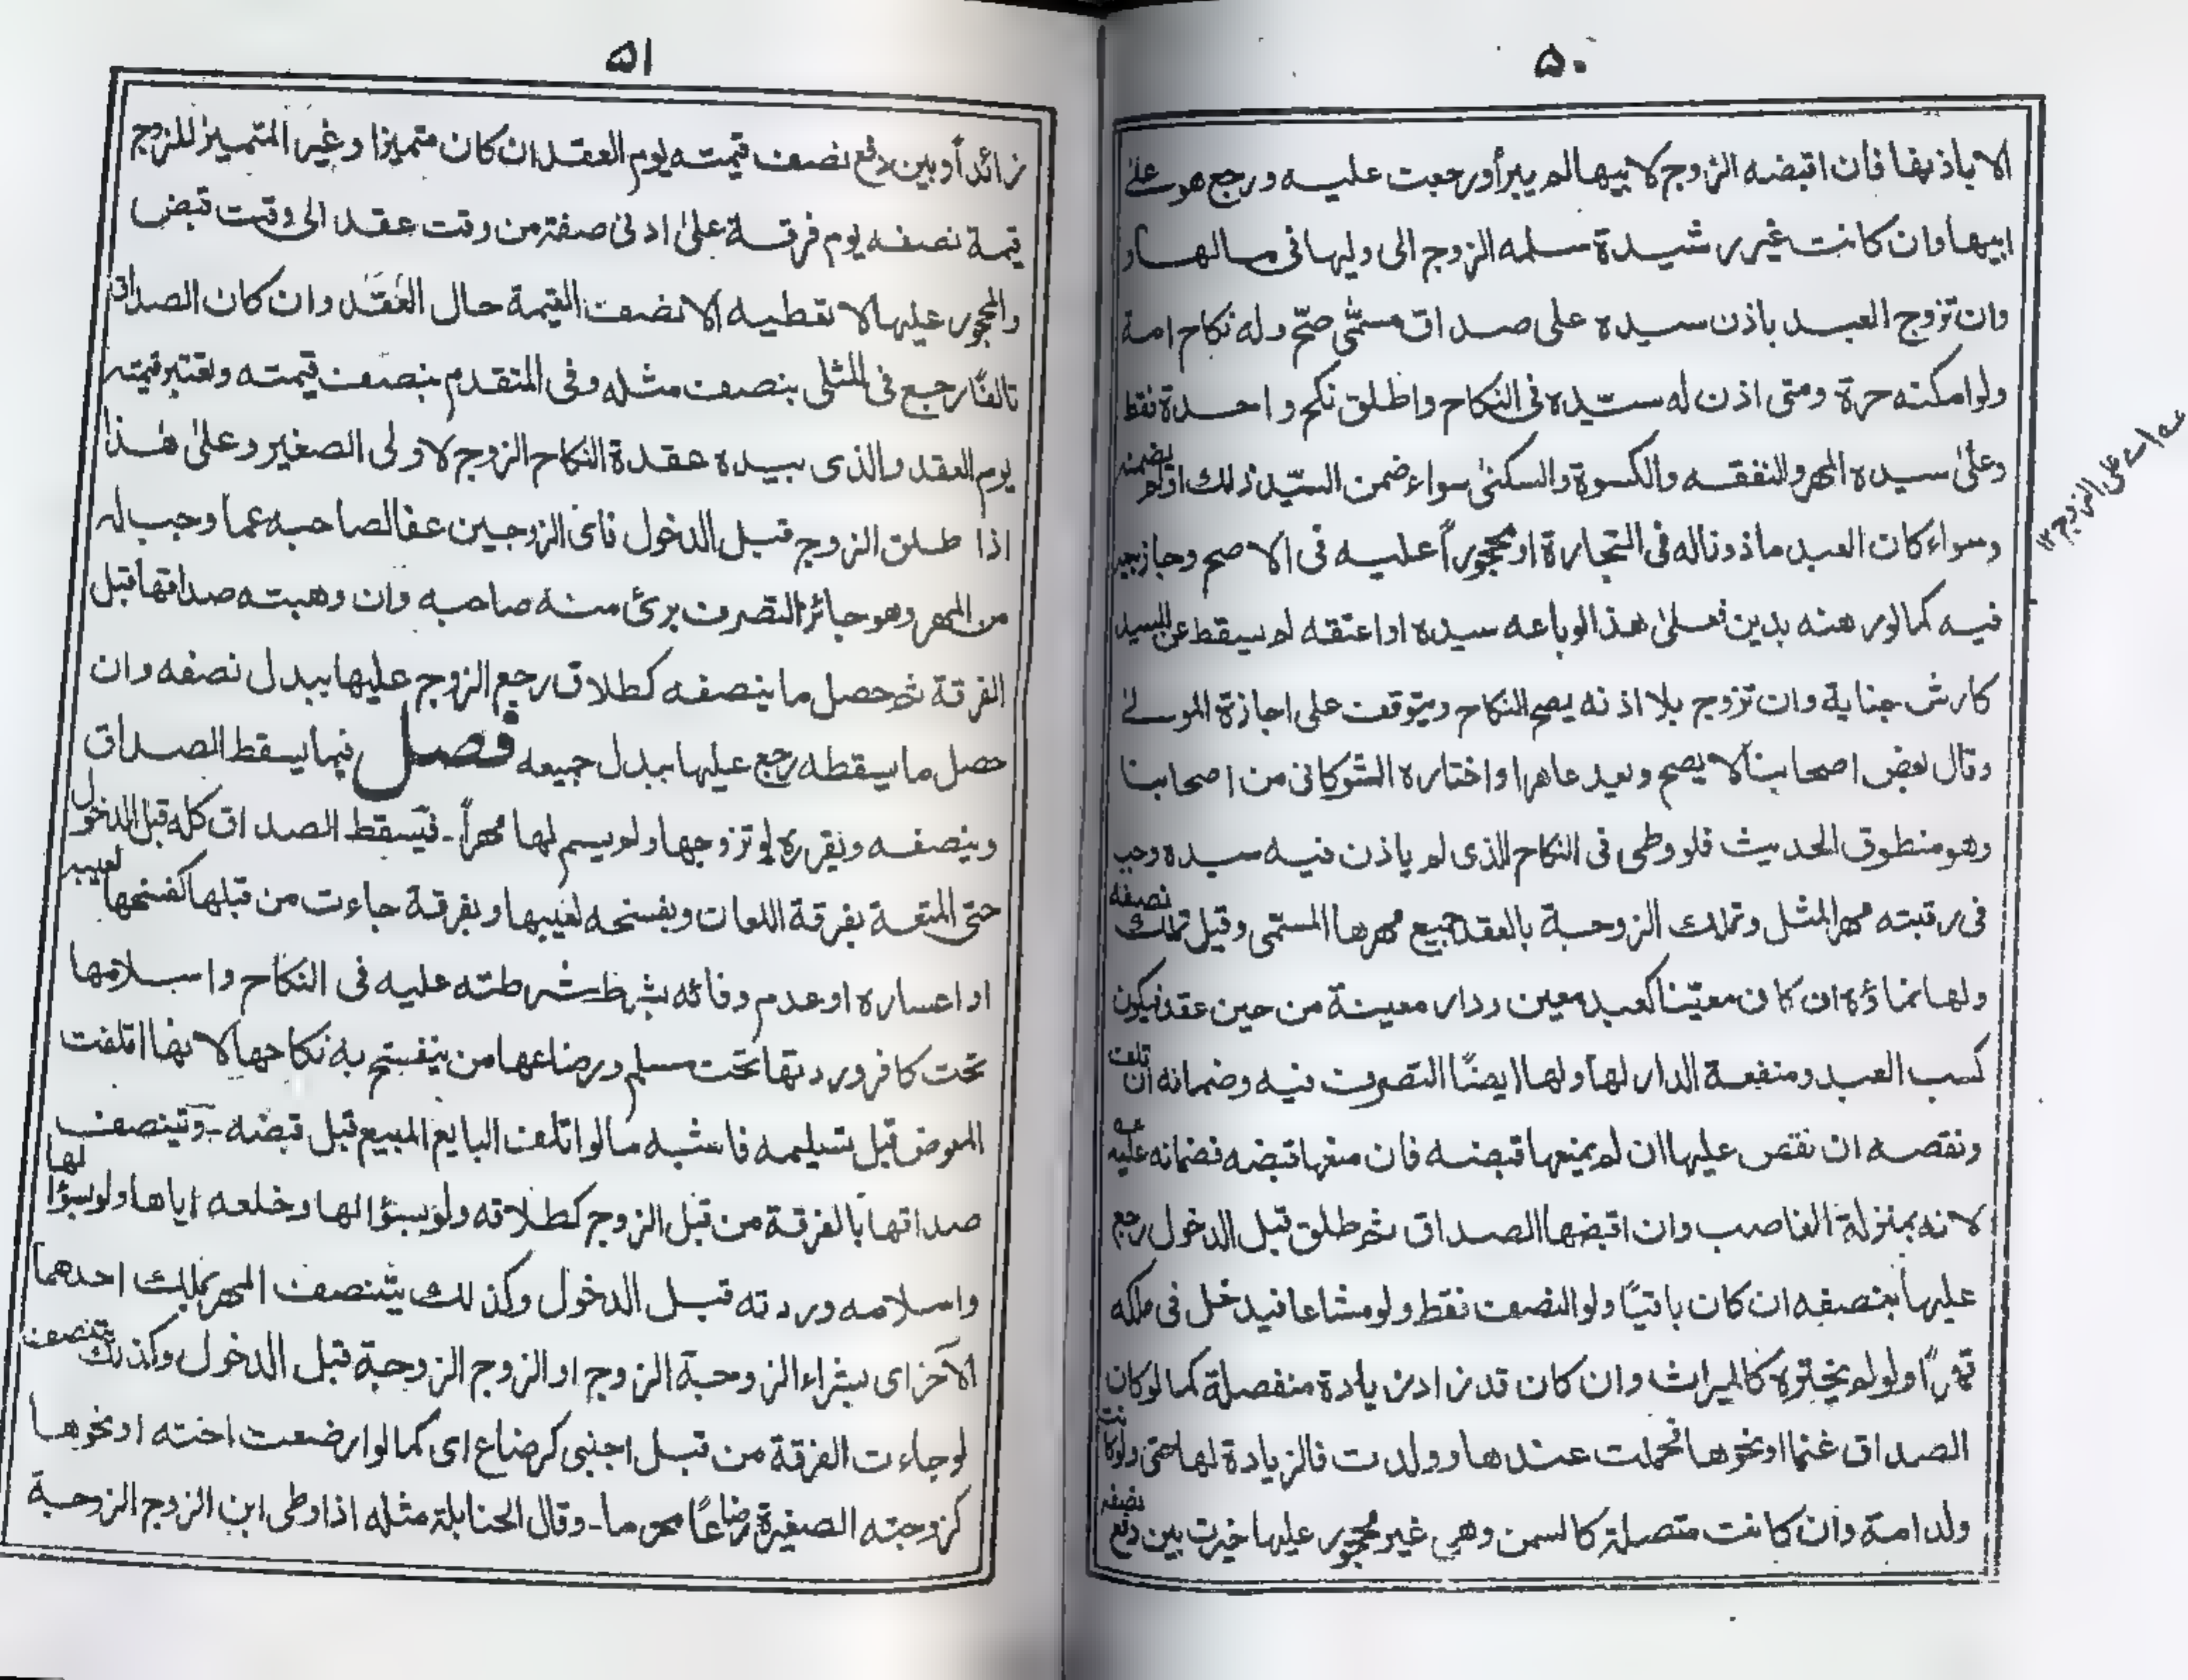 ۵۰
الا باذنها فان اقبضه الزوج لابيها لم يبرأ ورجعت عليه ورجع هو على
ابيها وان كانت غير رشيدة سلمه الزوج الى وليها فى مالها و
وان تزوج العبد باذن سيده على صداق مسمّى صحّ وله نكاح امة
ولوامكنه حرة ومتى اذن له سيّده فى النكاح واطلق نكح واحدة فقط
وعلىٰ سيده المهر والنفقه والكسوة والسكنىٰ سواء ضمن السيّد ذلك اولم يضمنه
وسواء كان العبد ماذونا له فى التجارة او محجوراً عليه فى الاصح وجاز بيعه
فيه كما لو رهنه بدين فعلىٰ هذا لو باعه سيده او اعتقه لم يسقط عن السيد
كارش جناية وان تزوج بلا اذنه يصح النكاح ويتوقف على اجازة المولى
وقال بعض اصحابنا لا يصح ويعد عاهرا واختاره الشوكانى من اصحابنا
وهو منطوق الحديث فلو وطى فى النكاح الذى لم ياذن فيه سيده وجب
فى رقبته مهر المثل وتملك الزوجة بالعقد جميع مهرها المسمى وقيل تملك نصفه
ولها نماؤه ان كان معيّنا كعبد معين ودار معينة من حين عقد فيكون
كسب العبد ومنفعة الدار لها ولها ايضًا التصرف فيه وضمانه ان تلف
ونقصه ان نقص عليها ان لم يمنعها قبضه فان منعها قبضه فضمانه عليه
لانه بمنزلة الغاصب وان اقبضها الصداق ثم طلق قبل الدخول رجع
عليها بنصفه ان كان باقيًا ولو النصف فقط ولو مشاعا فيدخل فى ملكه
قهرًا ولو لم يختره كالميراث وان كان قد زاد زيادة منفصلة كما لو كان
الصداق غنما او نحوها فحملت عندها وولدت فالزيادة لها حتى ولو كانت
ولد امة وان كانت متصلة كالسمن وهى غير محجور عليها خيرت بين دفع نصفه
عه اى على الزوج ۱۲
۵۱
زائد أو بين دفع نصف قيمته يوم العقد ان كان متميزا وغير المتميز للزوج
قيمة نصفه يوم فرقة علىٰ ادنىٰ صفة من وقت عقد الى وقت قبض
والمحجور عليها لا تعطيه الا نصف القيمة حال العقد وان كان الصداق
تالفًا رجع فى المثلى بنصف مثله وفى المتقدم بنصف قيمته وتعتبر قيمته
يوم العقد والذى بيده عقدة النكاح الزوج لا ولى الصغير وعلىٰ هٰذا
اذا طلق الزوج قبل الدخول فاى الزوجين عفا لصاحبه عما وجب له
من المهر وهو جائز التصرف برئ منه صاحبه وان وهبته صداقها قبل
الفرقة ثم حصل ما ينصفه كطلاق رجع الزوج عليها ببدل نصفه وان
حصل ما يسقطه رجع عليها ببدل جميعه فصل فيما يسقط الصداق
وينصفه ويقرره لو تزوجها ولم يسم لها مهراً۔ فيسقط الصداق كله قبل الدخول
حتى المتعة بفرقة اللعان وبفسخه لعيبها وبفرقة جاءت من قبلها كفسخها لعيبه
او اعساره او عدم وفائه بشرط شرطته عليه فى النكاح واسلامها
تحت كافر وردتها تحت مسلم ورضاعها من ينفسخ به نكاحها لانها اتلفت
المعوض قبل تسليمه فاشبه ما لو اتلف البايع المبيع قبل قبضه۔ ويتنصف
صداقها بالفرقة من قبل الزوج كطلاقه ولو بسؤالها وخلعه اياها ولو بسؤالها
واسلامه وردته قبل الدخول وكذلك يتنصف المهر بملك احدهما
الآخر اى بشراء الزوجة الزوج او الزوج الزوجة قبل الدخول وكذلك يتنصف
لو جاءت الفرقة من قبل اجنبى كرضاع اى كما لو ارضعت اخته او نحوها
كزوجته الصغيرة رضاعًا محرما۔ وقال الحنابلة مثله اذا وطى ابن الزوج الزوجة